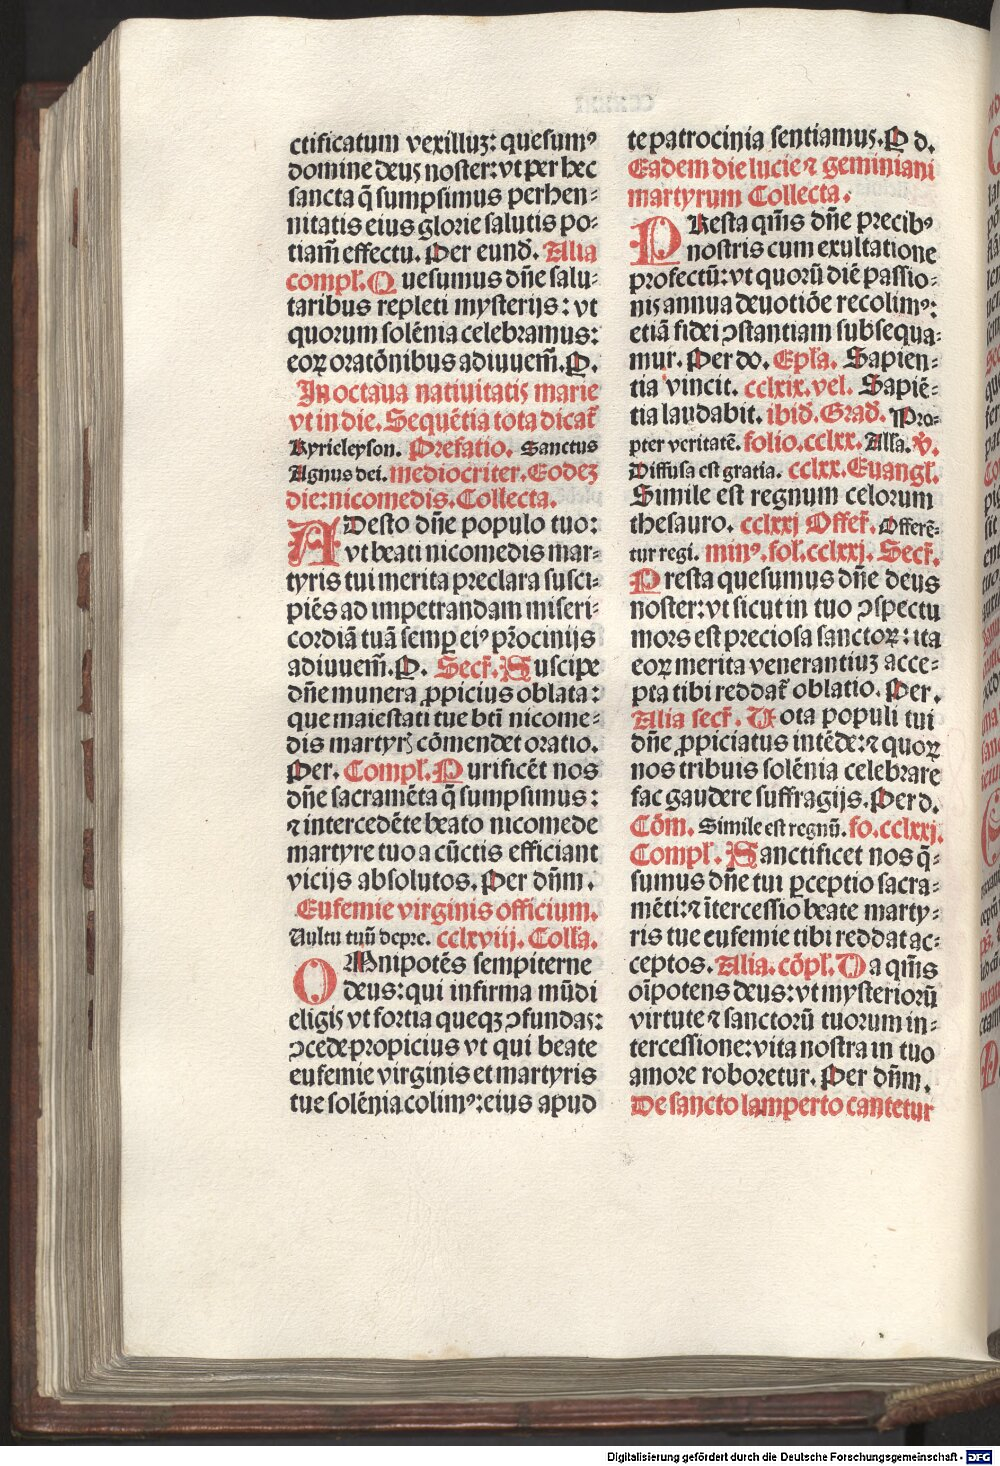 ctificatum vexilluꝫ: quesumꝰ
domine deus noster: vt per hec
sancta q̄ sumpsimus perhen-
nitatis eius glorie salutis po-
tiam̄ effectu. Per eund̄. Alia
compl̄. Q uesumus dn̄e salu-
taribus repleti mysterijs: vt
quorum solēnia celebramus:
eoꝝ oratōnibus adiuuem̄. P.
In octaua natiuitatis marie
vt in die. Sequētia tota dicat̄
Kyrieleyson. Prefatio. Sanctus
Agnus dei. mediocriter. Eodeꝫ
die: nicomedis. Collecta.
A Desto dn̄e populo tuo:
vt beati nicomedis mar-
tyris tui merita preclara susci-
piēs ad impetrandam miseri-
cordiā tuā semp eiꝰ pr̄ocinijs
adiuuem̄. P. Secr̄. Suscipe
dn̄e munera ꝓpicius oblata:
que maiestati tue bti̅ nicome-
dis martyrꝭ cōmendet oratio.
Per. Compl̄. P urificēt nos
dn̄e sacramēta q̄ sumpsimus:
⁊ intercedēte beato nicomede
martyre tuo a cūctis efficiant
vicijs absolutos. Per dn̄m.
Eufemie virginis officium.
Vultu tuū depre. cclxviij. Coll̄a.
O Mnipotēs sempiterne
deus: qui infirma mūdi
eligis vt fortia queqꝫ ꝯfundas:
ꝯcede propicius vt qui beate
eufemie virginis et martyris
tue solēnia colimꝰ: eius apud
te patrocinia sentiamus. P d.
Eadem die lucie ⁊ geminiani
martyrum Collecta.
P Resta qm̄s dn̄e precibꝰ
nostris cum exultatione
profectū: vt quorū diē passio-
nis annua deuotiōe recolimꝰ:
etiā fidei ꝯstantiam subsequa-
mur. Per do. Epl̄a. Sapien-
tia vincit. cclxix. vel. Sapiē-
tia laudabit. ibid̄. Grad̄. Pro-
pter veritatē. folio. cclxx. All̄a. v̄.
Diffusa est gratia. cclxx. Euangl̄.
Simile est regnum celorum
thesauro. cclxxj Offer̄. Offerē-
tur regi. minꝰ. fol̄. cclxxj. Secr̄.
P resta quesumus dn̄e deus
noster: vt sicut in tuo ꝯspectu
mors est preciosa sanctoꝝ: ita
eoꝝ merita venerantiuꝫ acce-
pta tibi reddat̄ oblatio. Per.
Alia secr̄. Vota populi tui
dn̄e ꝓpiciatus intēde: ⁊ quoꝝ
nos tribuis solēnia celebrare
fac gaudere suffragijs. Per d.
Cōm. Simile est regnū. fo. cclxxj.
Compl̄. Sanctificet nos q̄-
sumus dn̄e tui ꝑceptio sacra-
mēti: ⁊ ītercessio beate marty-
ris tue eufemie tibi reddat ac-
ceptos. Alia. cōpl̄. D a qm̄s
oīpotens deus: vt mysteriorū
virtute ⁊ sanctorū tuorum in-
tercessione: vita nostra in tuo
amore roboretur. Per dn̄m.
De sancto lamperto cantetur
Digitalisierung gefördert durch die Deutsche Forschungsgemeinschaft - DFG